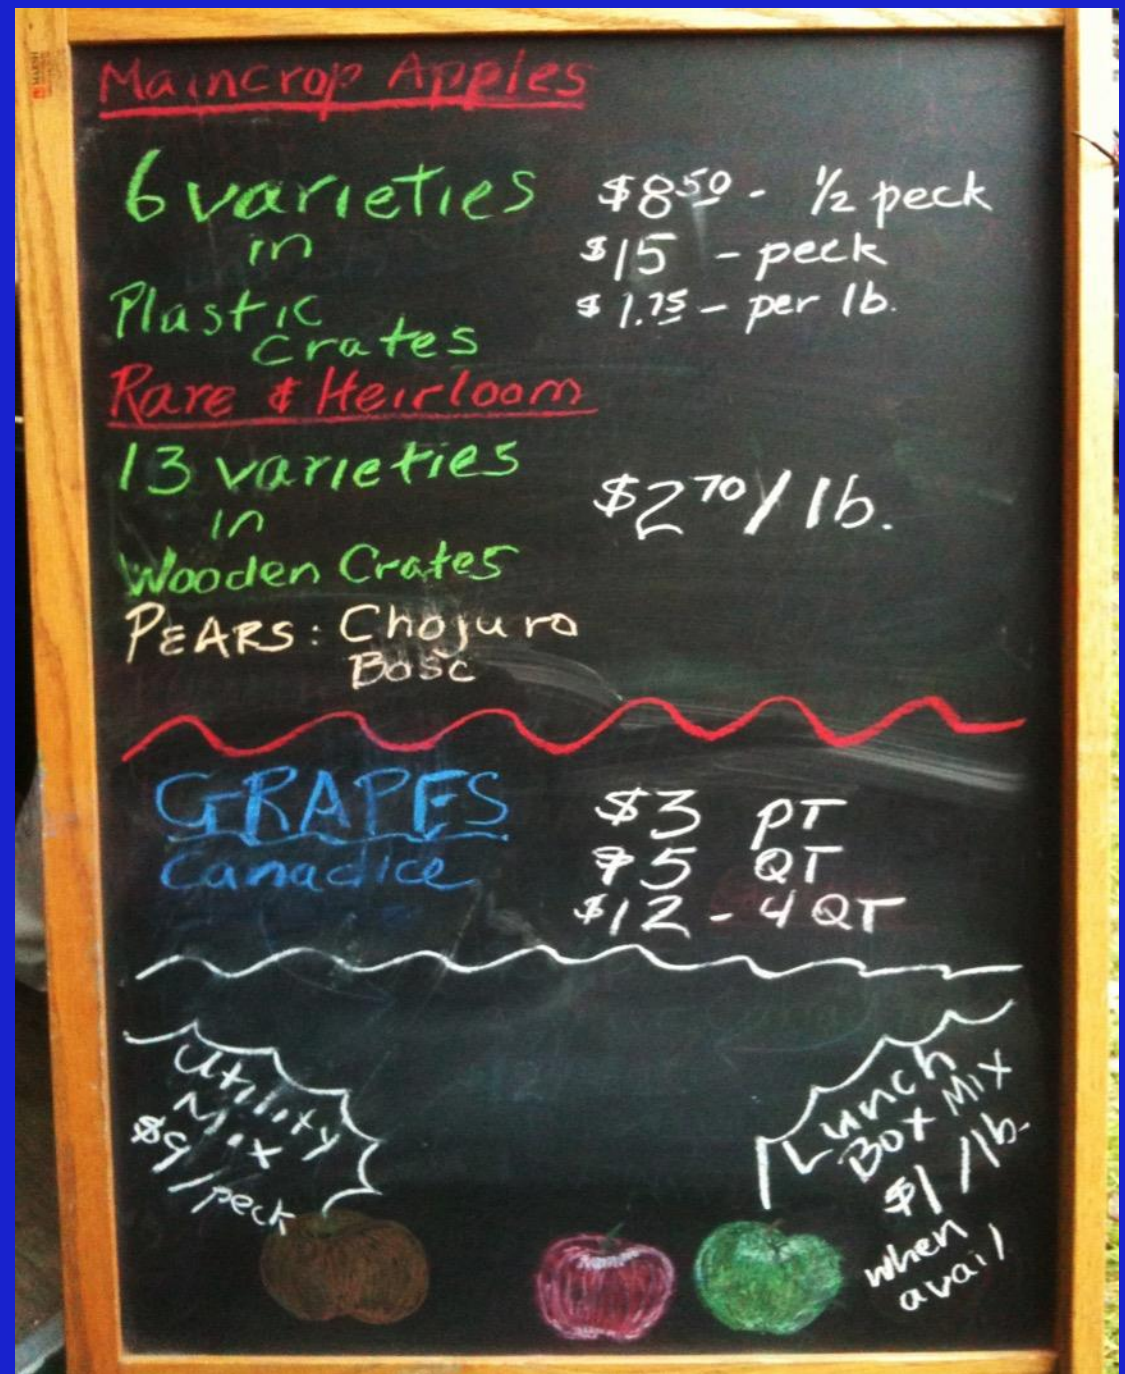 Maincrop Apples
6 varieties
in
Plastic
Crates
$8.50 - 1/2 peck
$15 - peck
$1.75 - per lb.
Rare & Heirloom
13 varieties
in
Wooden Crates
$2.70 / lb.
PEARS: Chojuro
Bosc
GRAPES
Canadice
$3 PT
$5 QT
$12 - 4 QT
Utility
Mix
$9/peck
Lunch
Box Mix
$1/lb.
when
avail